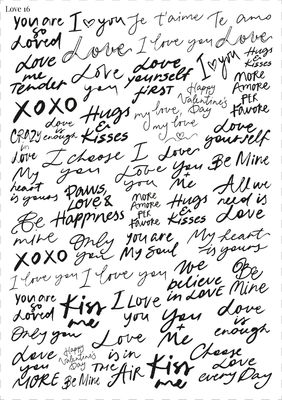 Love 16
you are so loved
I ♡ you
Je t'aime
Te amo
Love
I love you
Love
love me Tender
Love you
Love yourself first
I ♡ you
Hugs & Kisses
XOXO
Love is enough
Hugs & Kisses
Happy Valentine's Day
my love, my love
More Amore PER Favore
CRAZY in love
I choose you
I Love you
Love yourself
My heart is yours
Paws, Love & Happiness
Love You + Me
Be Mine
Be mine
More Amore PER Favore
Hugs & Kisses
All we need is Love
XOXO
Only you
You are My Soul
My heart is yours
I love you
I love you
We believe in LOVE
Be Mine
you are so loved
Kiss me
I Love you
You + me
Love is enough
Only you
Love
Love you MORE
Happy Valentine's Day
Be Mine
Love is in THE AIR
Kiss me
Choose Love every Day